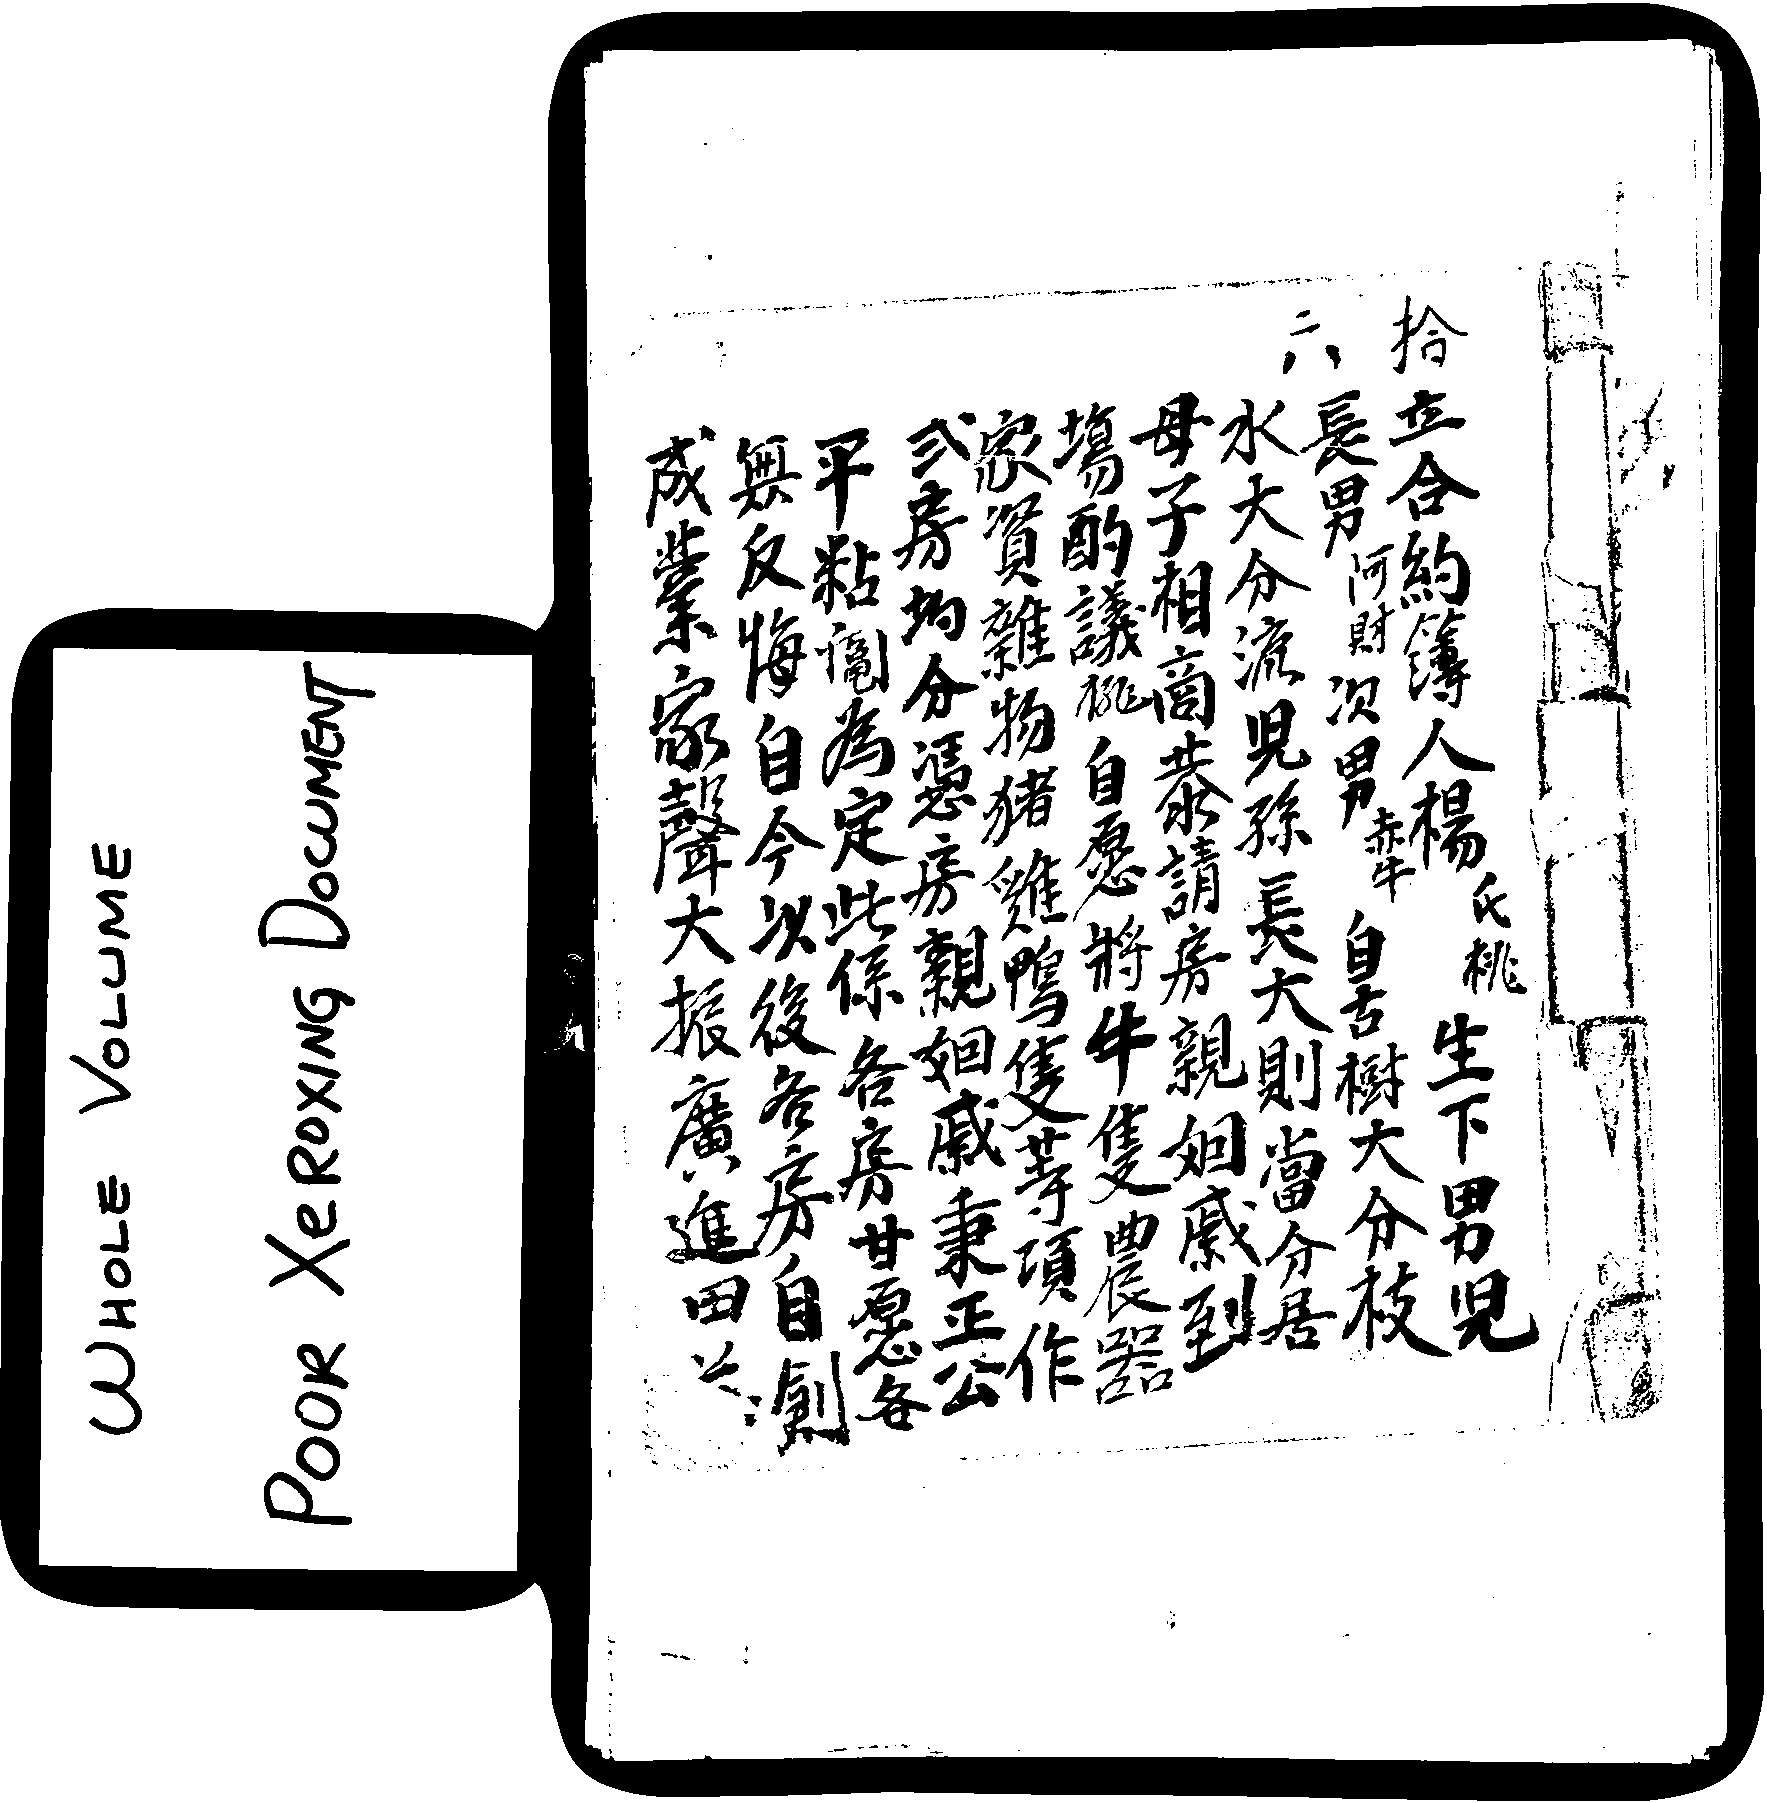 拾立合約簿人楊氏桃生下男兒
六長男阿財次男赤牛自古樹大分枝
水大分流兒孫長大則當分居
母子相商恭請房親姻戚到
塲酌議桃自愿將牛隻農器
家資雜物猪雞鴨隻等項作
弍房均分憑房親姻戚秉正公
平粘鬮為定此係各房甘愿各
無反悔自今以後各房自創
成業家聲大振廣進田
WHOLE VOLUME
POOR XEROXING DOCUMENT